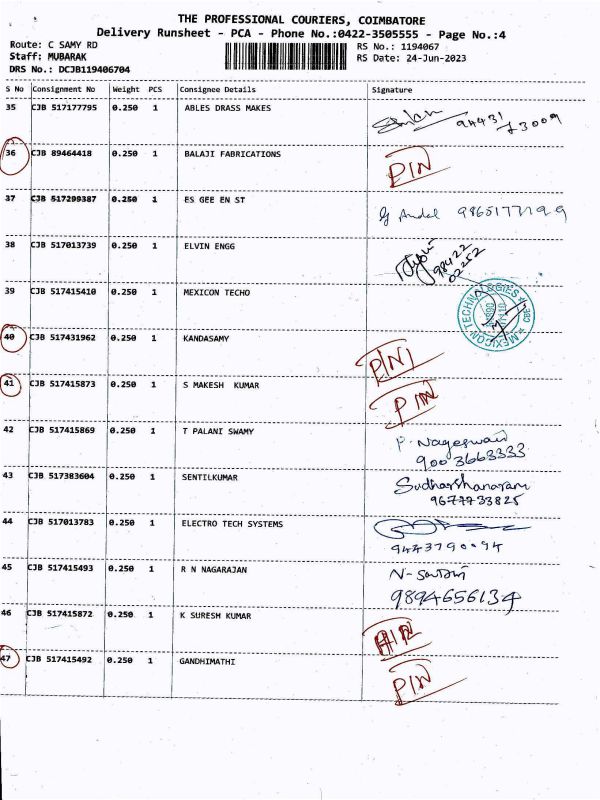 THE PROFESSIONAL COURIERS, COIMBATORE
Delivery Runsheet - PCA - Phone No.:0422-3505555 - Page No.:4
Route: C SAMY RD RS No.: 1194067
Staff: MUBARAK RS Date: 24-Jun-2023
DRS No.: DCJB119406704
S No Consignment No Weight PCS Consignee Details Signature
35 CJB 517177795 0.250 1 ABLES DRASS MAKES
94431 73009
36 CJB 89464418 0.250 1 BALAJI FABRICATIONS PIN
37 CJB 517299387 0.250 1 ES GEE EN ST G Andal 9865177199
38 CJB 517013739 0.250 1 ELVIN ENGG
98422
02252
39 CJB 517415410 0.250 1 MEXICON TECHO MEXICON TECHNOLOGIES CBE
40 CJB 517431962 0.250 1 KANDASAMY PIN
41 CJB 517415873 0.250 1 S MAKESH KUMAR PIN
42 CJB 517415869 0.250 1 T PALANI SWAMY P. Nageswari
9003663333
43 CJB 517383604 0.250 1 SENTILKUMAR Sudharshanaram
9677733825
44 CJB 517013783 0.250 1 ELECTRO TECH SYSTEMS
9443790094
45 CJB 517415493 0.250 1 R N NAGARAJAN
9894656134
46 CJB 517415872 0.250 1 K SURESH KUMAR
47 CJB 517415492 0.250 1 GANDHIMATHI PIN